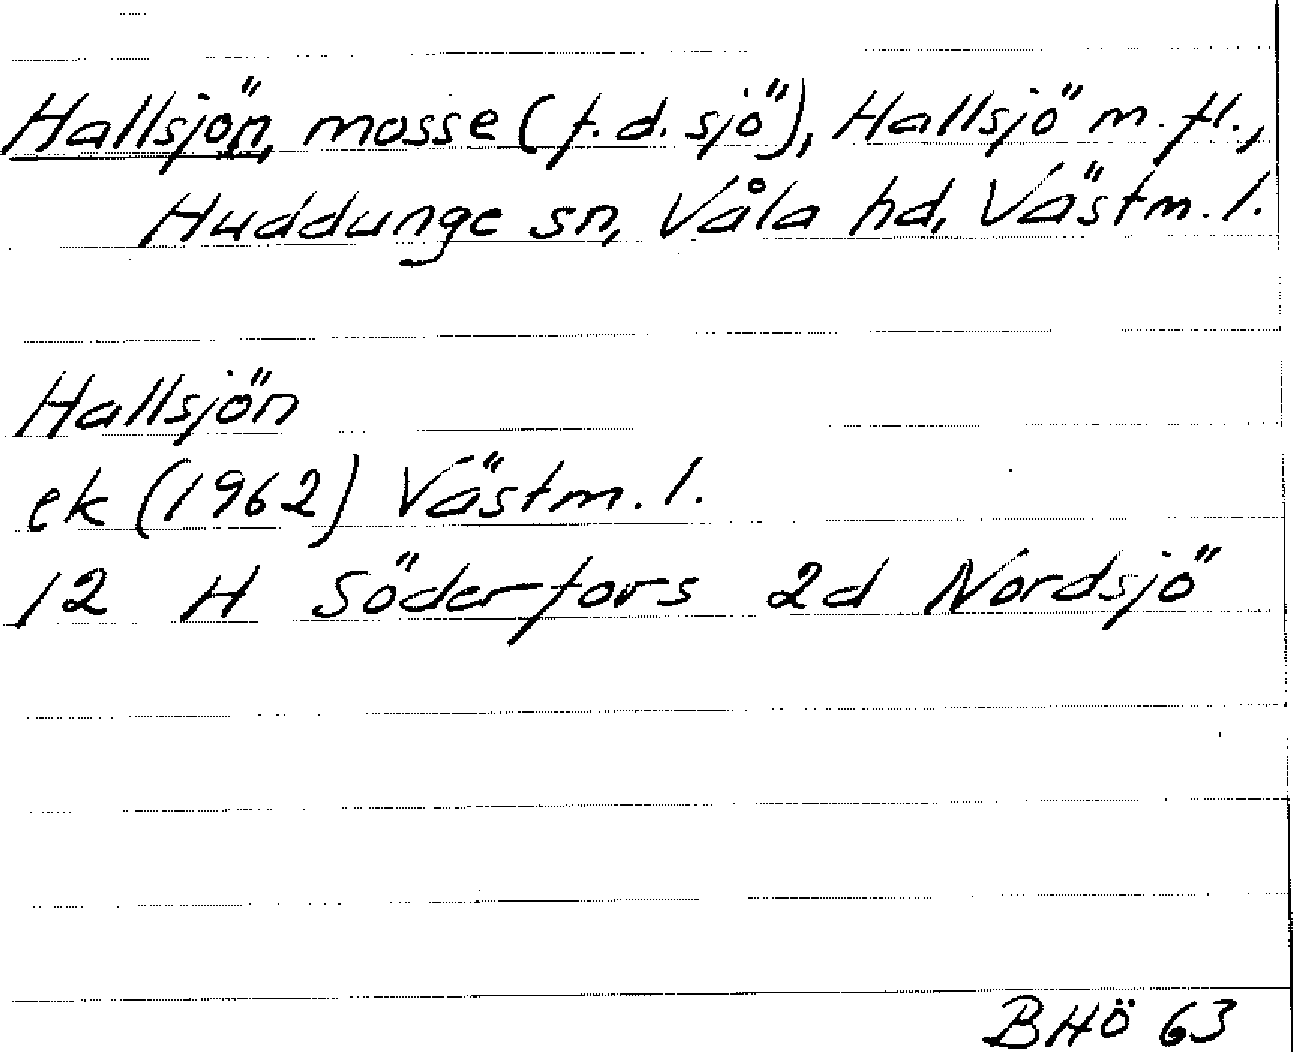 Hallsjön, mosse (f.d. sjö), Hallsjö m.fl.,
Huddunge sn, Våla hd, Västm.l.
Hallsjön
ek (1962) Västm.l.
12 H Söderfors 2d Nordsjö
BHÖ 63